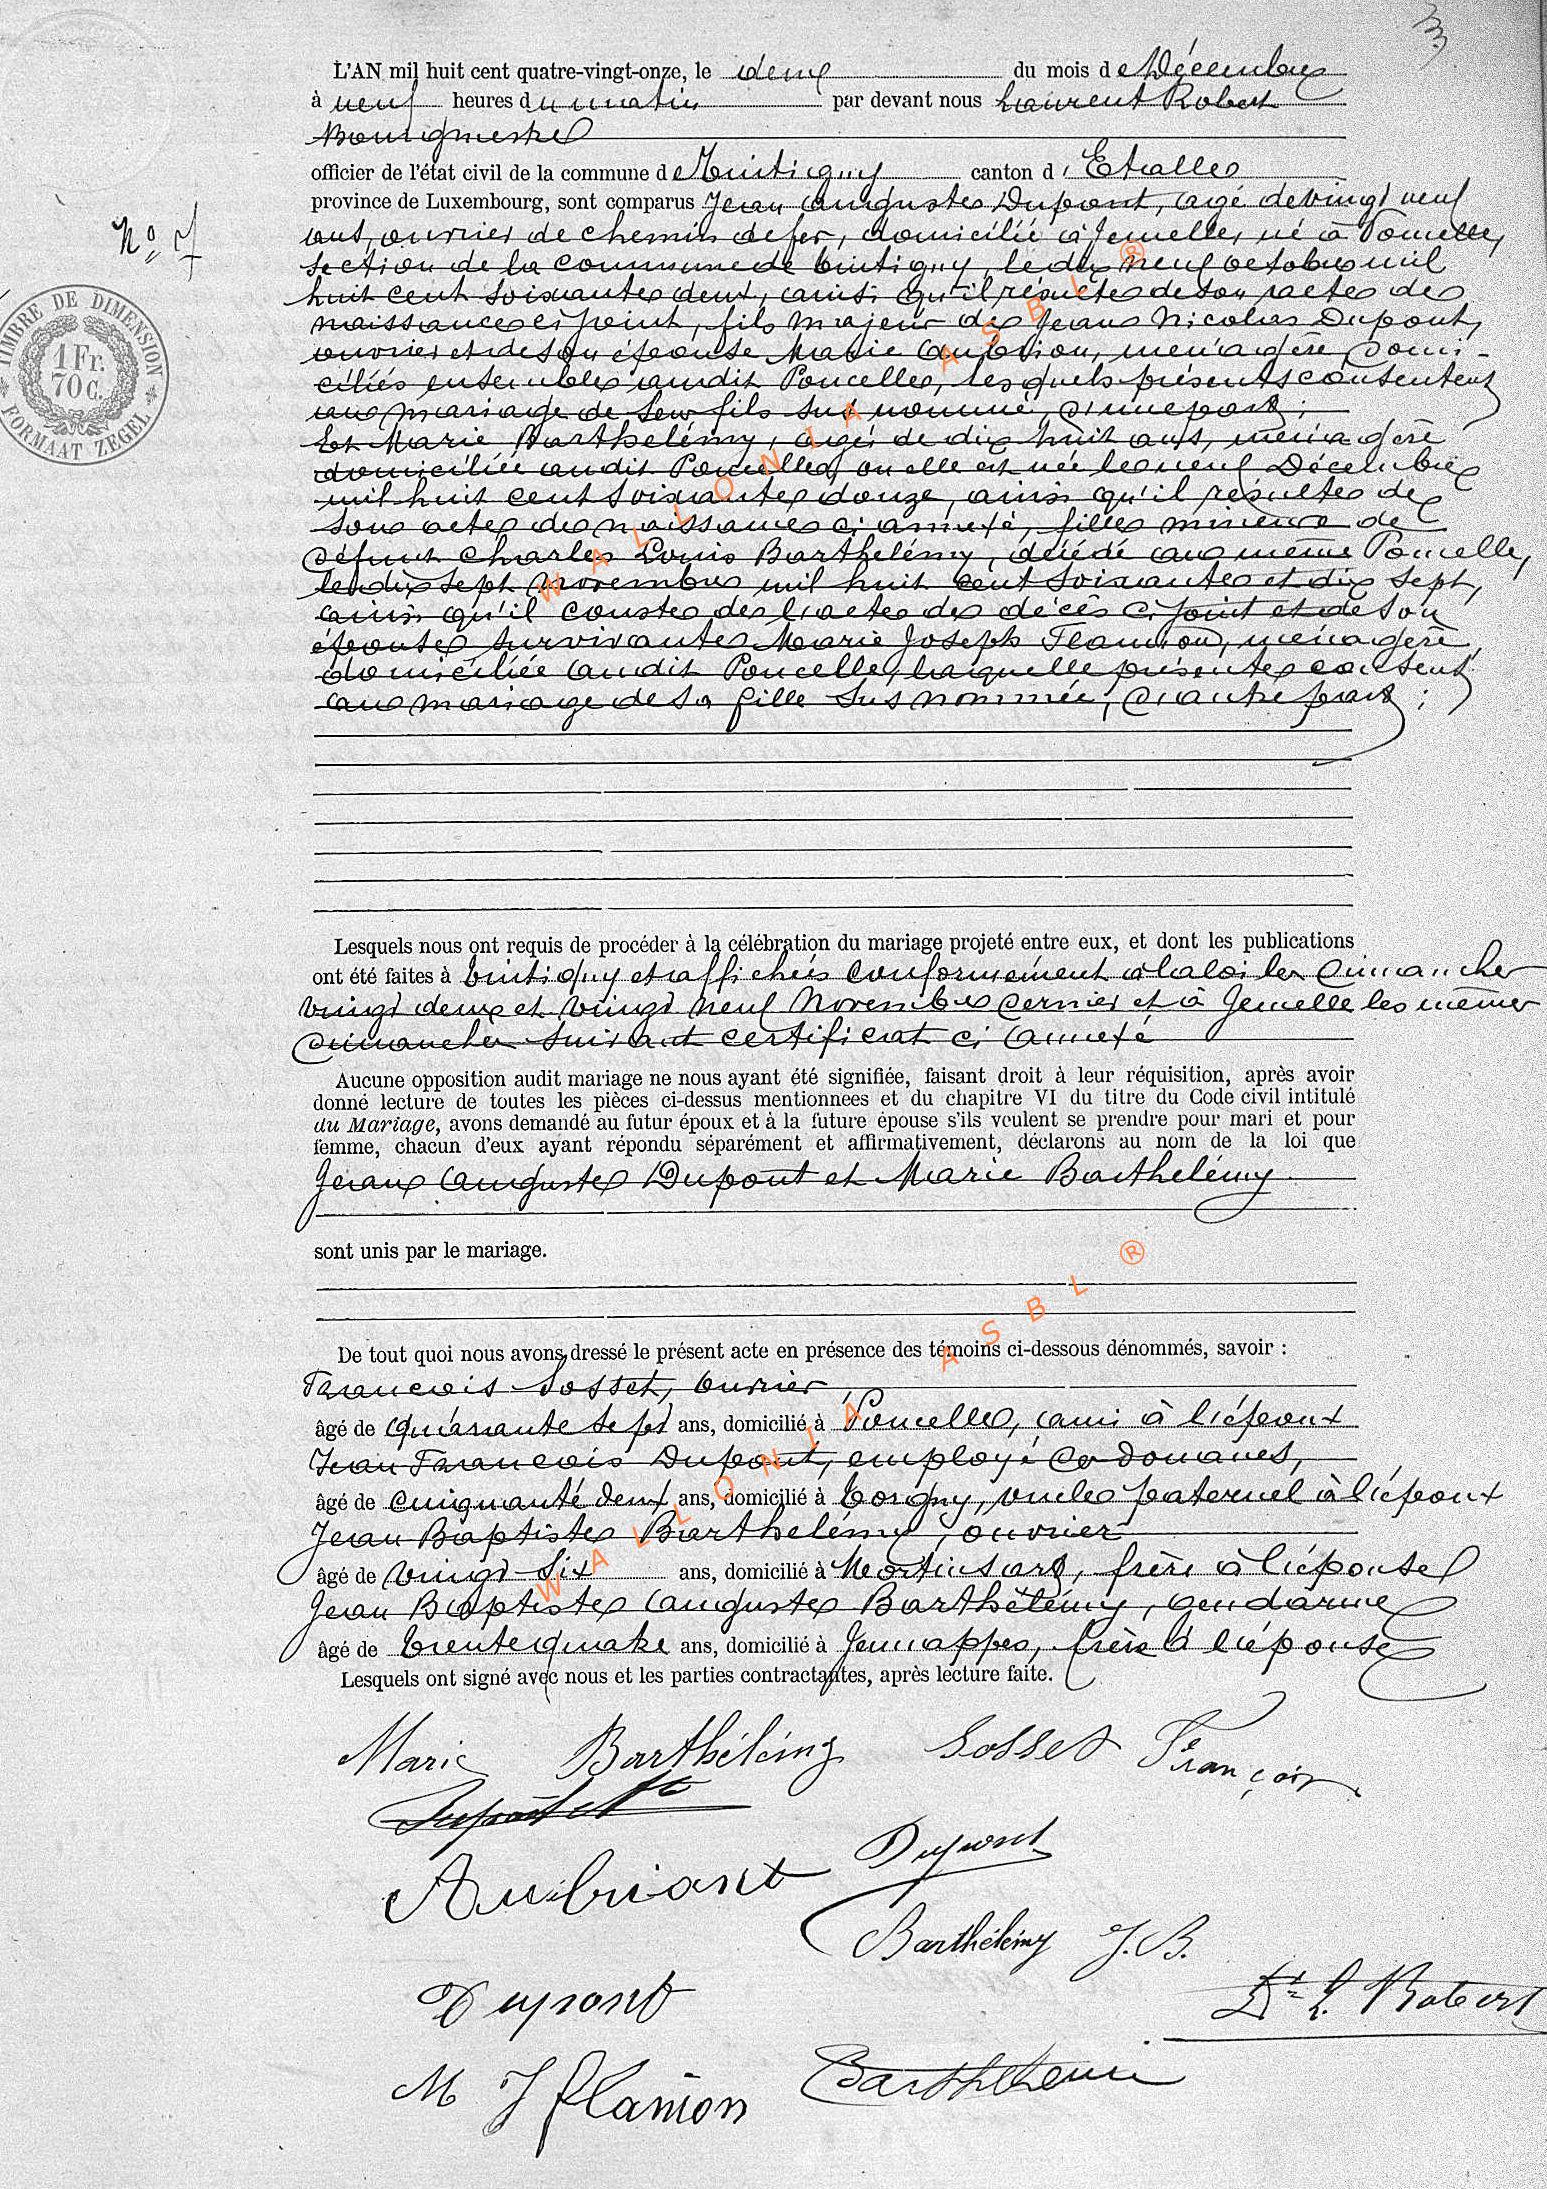 L'AN mil huit cent quatre-vingt-onze, le deux du mois de Décembre
à neuf heures du matin par devant nous Laurent Robert
Bourgmestre
officier de l'état civil de la commune de Tintigny canton d'Etalle
province de Luxembourg, sont comparus Jean Auguste Dupont, agé de vingt neuf
N° 7
ans, ouvrier de chemin de fer, domicilié à Jemelle, né à Poncelle,
section de la commune de Tintigny, le dix neuf octobre mil
huit cent soixante deux, ainsi qu'il résulte de son acte de
naissance ci joint, fils majeur de Jean Nicolas Dupont,
TIMBRE DE DIMENSION
1 Fr. 70 C.
FORMAAT ZEGEL
ouvrier et de son épouse Marie Aubrion, ménagère, domi-
ciliés ensemble audit Poncelle, lesquels présents consentent
au mariage de leur fils sus nommé, d'une part;
Et Marie Barthelémy, agée de dix huit ans, ménagère
domiciliée audit Poncelle, ou elle est née le neuf Décembre
mil huit cent soixante douze, ainsi qu'il résulte de
son acte de naissance ci annexé, fille mineure de
défunt Charles Louis Barthelémy, décédé au même Poncelle,
le dix sept novembre mil huit cent soixante et dix sept,
ainsi qu'il conste de l'acte de décès ci joint et de son
épouse survivante Marie Joseph Flamion, ménagère,
domiciliée audit Poncelle, laquelle présente consent
au mariage de sa fille sus nommée, d'autre part;
Lesquels nous ont requis de procéder à la célébration du mariage projeté entre eux, et dont les publications
ont été faites à Tintigny et affichées conformément à la loi les dimanches
vingt deux et vingt neuf Novembre dernier et à Jemelle les mêmes
dimanches suivant certificat ci annexé
Aucune opposition audit mariage ne nous ayant été signifiée, faisant droit à leur réquisition, après avoir
donné lecture de toutes les pièces ci-dessus mentionnées et du chapitre VI du titre du Code civil intitulé
du Mariage, avons demandé au futur époux et à la future épouse s'ils veulent se prendre pour mari et pour
femme, chacun d'eux ayant répondu séparément et affirmativement, déclarons au nom de la loi que
Jean Auguste Dupont et Marie Barthelémy
sont unis par le mariage.
De tout quoi nous avons dressé le présent acte en présence des témoins ci-dessous dénommés, savoir :
François Sosset, ouvrier
âgé de quarante sept ans, domicilié à Poncelle, ami à l'époux
Jean François Dupont, employé de douanes,
âgé de cinquante deux ans, domicilié à Torgny, oncle paternel à l'époux
Jean Baptiste Barthelémy, ouvrier
âgé de vingt-six ans, domicilié à Mortinsart, frère à l'épouse
Jean Baptiste Auguste Barthelémy, gendarme
âgé de trente quatre ans, domicilié à Jemappes, frère à l'épouse
Lesquels ont signé avec nous et les parties contractantes, après lecture faite.
Marie Barthélémy Sosset François
Dupont
Aubriont Dupont
Barthélémy J.B.
Dupont Dr L. Robert
M J flamion Barthelemi
WALLONIA ASBL ®
WALLONIA ASBL ®